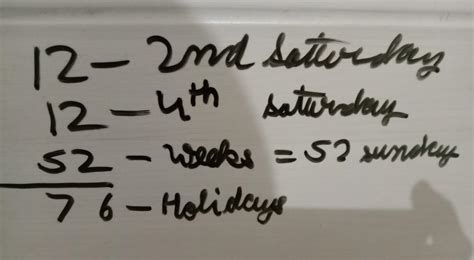 12 - 2nd Satturday
12 - 4th Saturday
52 - weeks = 52 sunday
76 - Holidays